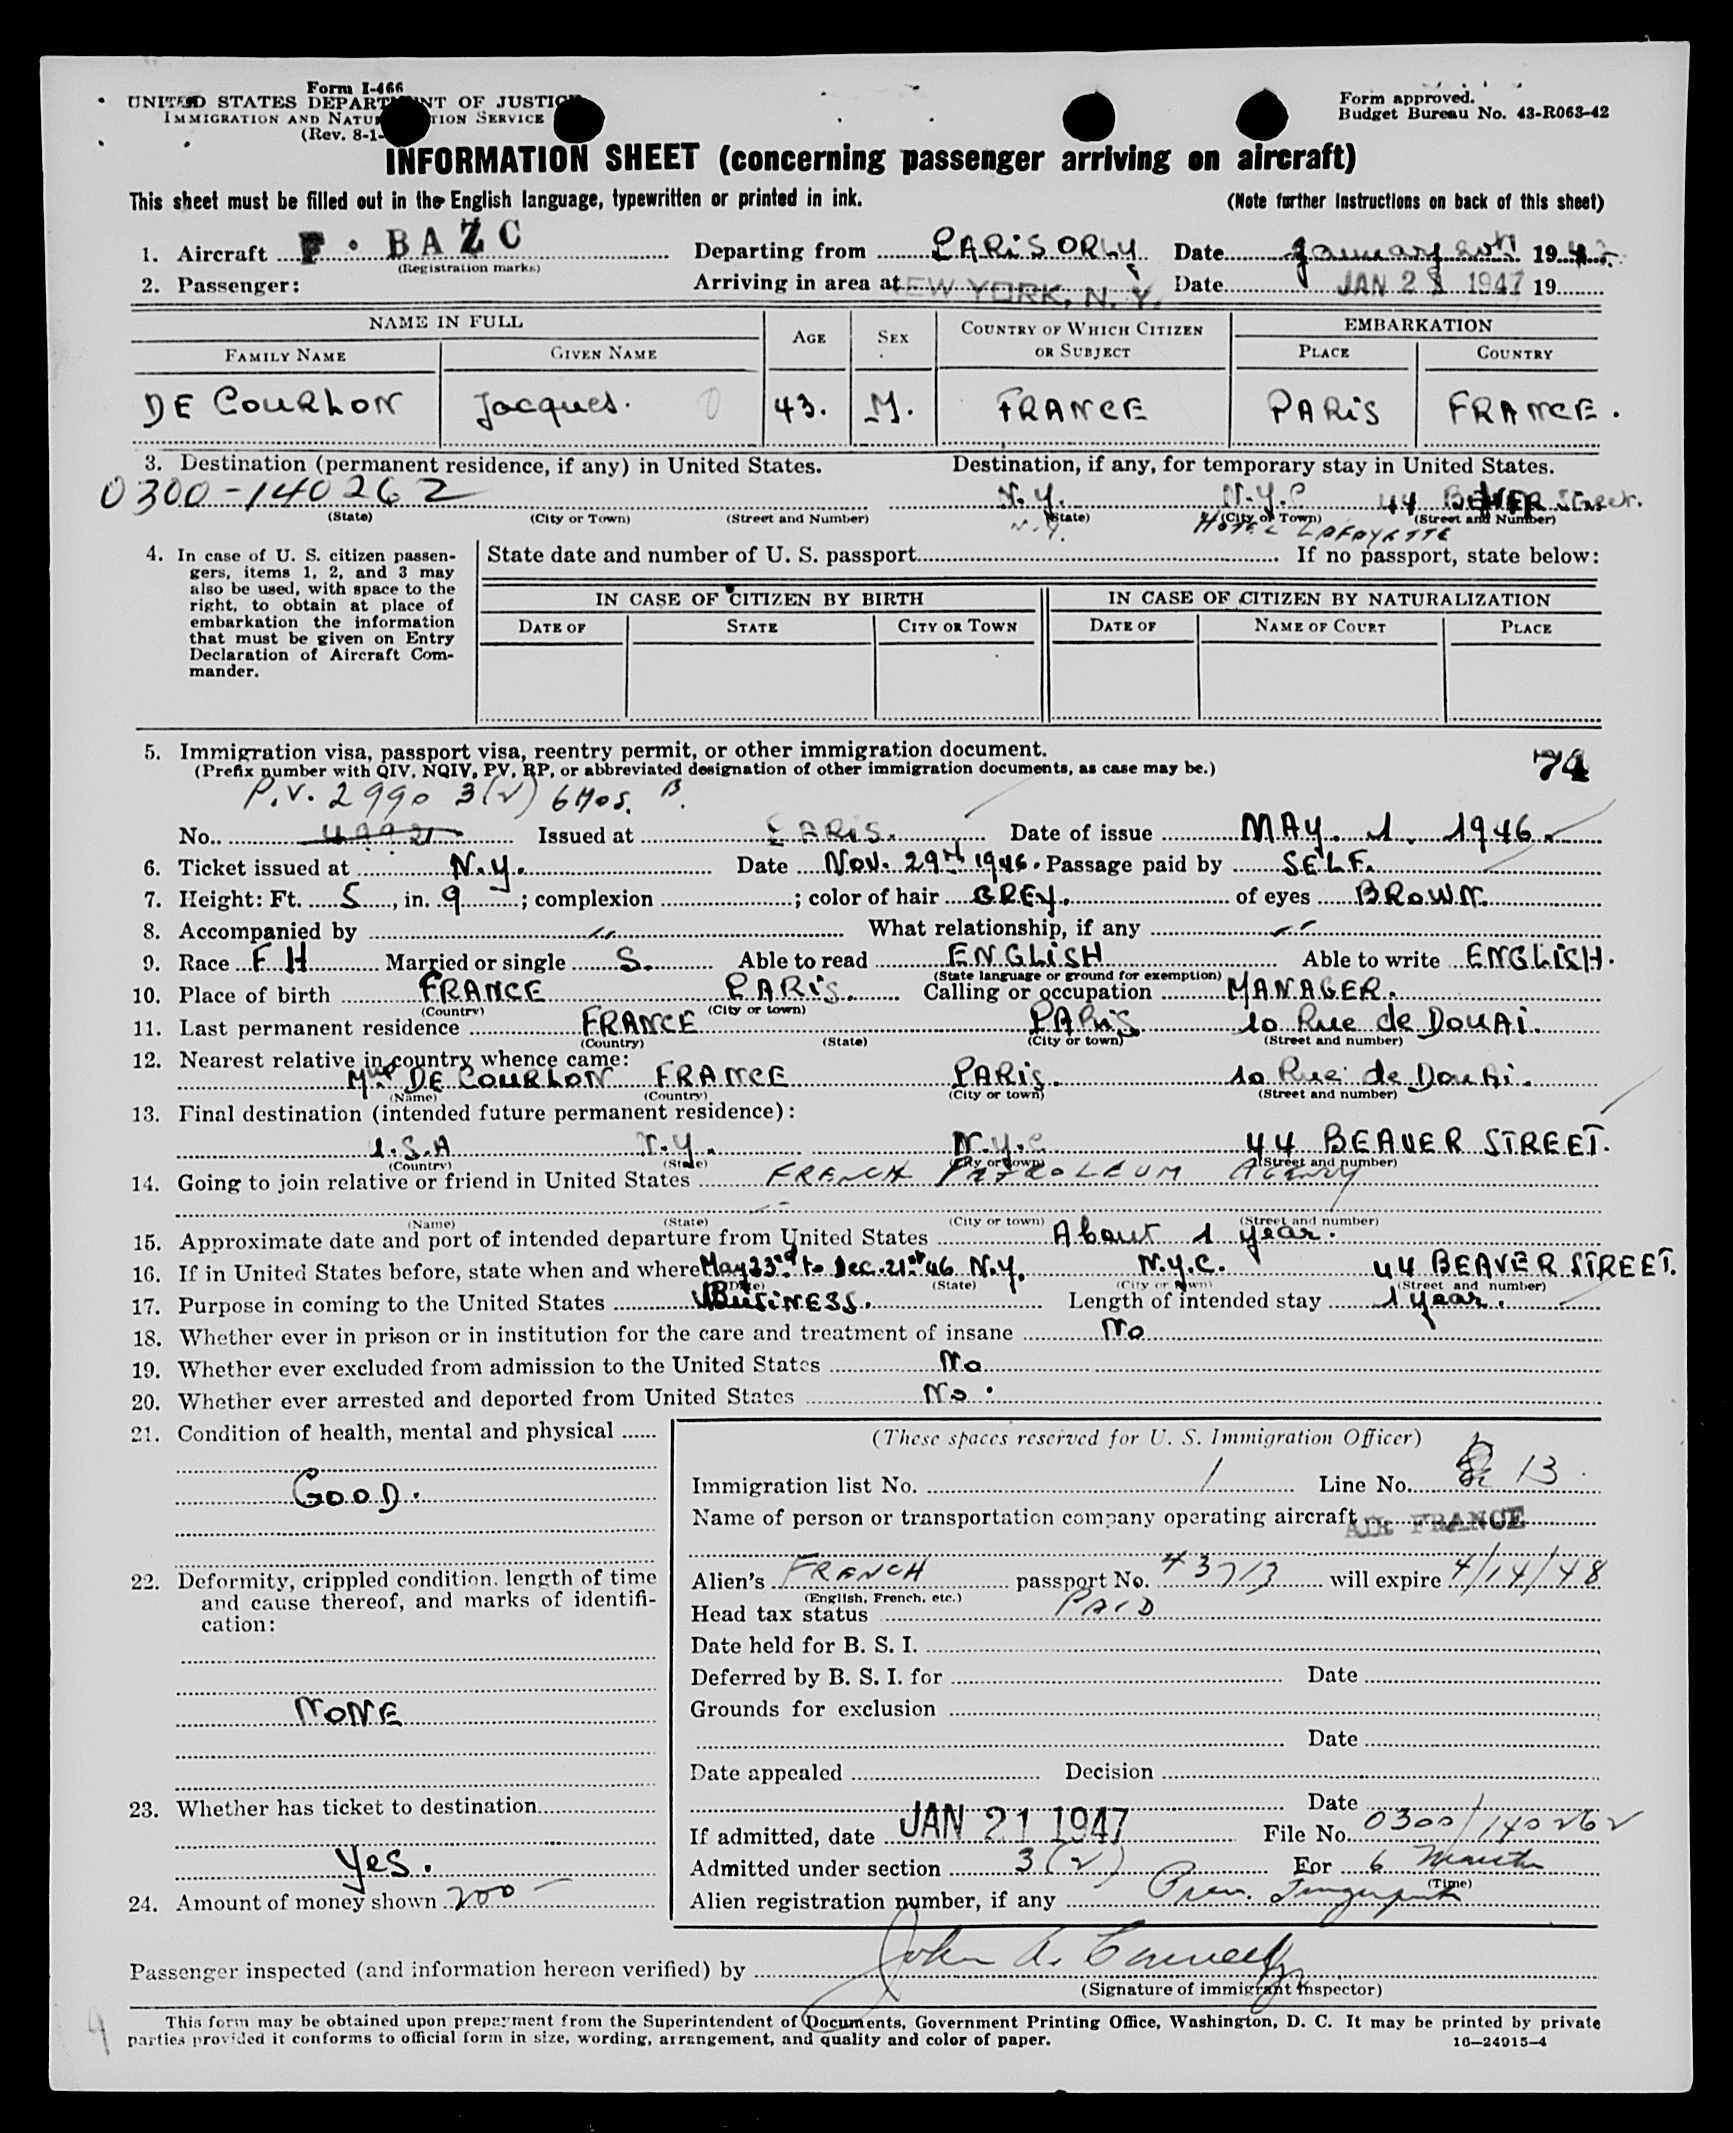 Form I-466
UNITED STATES DEPARTMENT OF JUSTICE
IMMIGRATION AND NATURALIZATION SERVICE
(Rev. 8-1-
Form approved.
Budget Bureau No. 43-R063-42
INFORMATION SHEET (concerning passenger arriving on aircraft)
This sheet must be filled out in the English language, typewritten or printed in ink. (Note further instructions on back of this sheet)
1. Aircraft F. BAZC Departing from PARIS ORLY Date January 20th 1947
(Registration marks)
2. Passenger: Arriving in area at NEW YORK, N. Y. Date JAN 21 1947 19
NAME IN FULL AGE SEX COUNTRY OF WHICH CITIZEN OR SUBJECT EMBARKATION
FAMILY NAME GIVEN NAME PLACE COUNTRY
DE COURLON Jacques. 43. M. FRANCE PARIS FRANCE.
3. Destination (permanent residence, if any) in United States. Destination, if any, for temporary stay in United States.
0300-140262 N.Y. N.Y.C 44 BEAVER Street.
(State) (City or Town) (Street and Number) (State) (City or Town) (Street and Number)
N.Y. HOTEL LAFAYETTE
4. In case of U. S. citizen passengers, items 1, 2, and 3 may also be used, with space to the right, to obtain at place of embarkation the information that must be given on Entry Declaration of Aircraft Commander.
State date and number of U. S. passport If no passport, state below:
IN CASE OF CITIZEN BY BIRTH IN CASE OF CITIZEN BY NATURALIZATION
DATE OF STATE CITY OR TOWN DATE OF NAME OF COURT PLACE
5. Immigration visa, passport visa, reentry permit, or other immigration document. 74
(Prefix number with QIV, NQIV, PV, RP, or abbreviated designation of other immigration documents, as case may be.)
P.V. 2990 3(2) 6 Mos. B.
No. Issued at PARIS. Date of issue MAY. 1. 1946.
6. Ticket issued at N.Y. Date Nov. 29th 1946. Passage paid by SELF.
7. Height: Ft. 5, in. 9; complexion; color of hair GREY. of eyes BROWN.
8. Accompanied by What relationship, if any
9. Race F H Married or single S. Able to read ENGLISH Able to write ENGLISH.
(State language or ground for exemption)
10. Place of birth FRANCE PARIS. Calling or occupation MANAGER.
(Country) (City or town)
11. Last permanent residence FRANCE PARIS 10 Rue de DOUAI.
(Country) (State) (City or town) (Street and number)
12. Nearest relative in country whence came:
Mme DE COURLON FRANCE PARIS. 10 Rue de Douai.
(Name) (Country) (City or town) (Street and number)
13. Final destination (intended future permanent residence):
U.S.A N.Y. N.Y.C 44 BEAVER STREET.
(Country) (State) (City or town) (Street and number)
14. Going to join relative or friend in United States FRENCH PETROLEUM Agency
(Name) (State) (City or town) (Street and number)
15. Approximate date and port of intended departure from United States About 1 year.
16. If in United States before, state when and where May 23rd to Dec. 21st 46 N.Y. N.Y.C. 44 BEAVER STREET.
(Date) (State) (City or town) (Street and number)
17. Purpose in coming to the United States BUSINESS. Length of intended stay 1 year.
18. Whether ever in prison or in institution for the care and treatment of insane No
19. Whether ever excluded from admission to the United States No
20. Whether ever arrested and deported from United States No.
21. Condition of health, mental and physical
GOOD.
22. Deformity, crippled condition, length of time and cause thereof, and marks of identification:
NONE
23. Whether has ticket to destination
Yes.
24. Amount of money shown 200
(These spaces reserved for U. S. Immigration Officer)
Immigration list No. 1 Line No. 13
Name of person or transportation company operating aircraft AIR FRANCE
Alien's FRENCH passport No. 43713 will expire 4/14/48
(English, French, etc.)
Head tax status PAID
Date held for B. S. I.
Deferred by B. S. I. for Date
Grounds for exclusion
Date
Date appealed Decision
Date
If admitted, date JAN 21 1947 File No. 0300/140262
Admitted under section 3(2) For 6 Months
(Time)
Alien registration number, if any Prev. Fingerprint
Passenger inspected (and information hereon verified) by John A.
(Signature of immigrant inspector)
This form may be obtained upon prepayment from the Superintendent of Documents, Government Printing Office, Washington, D. C. It may be printed by private
parties provided it conforms to official form in size, wording, arrangement, and quality and color of paper. 16—24915-4
9